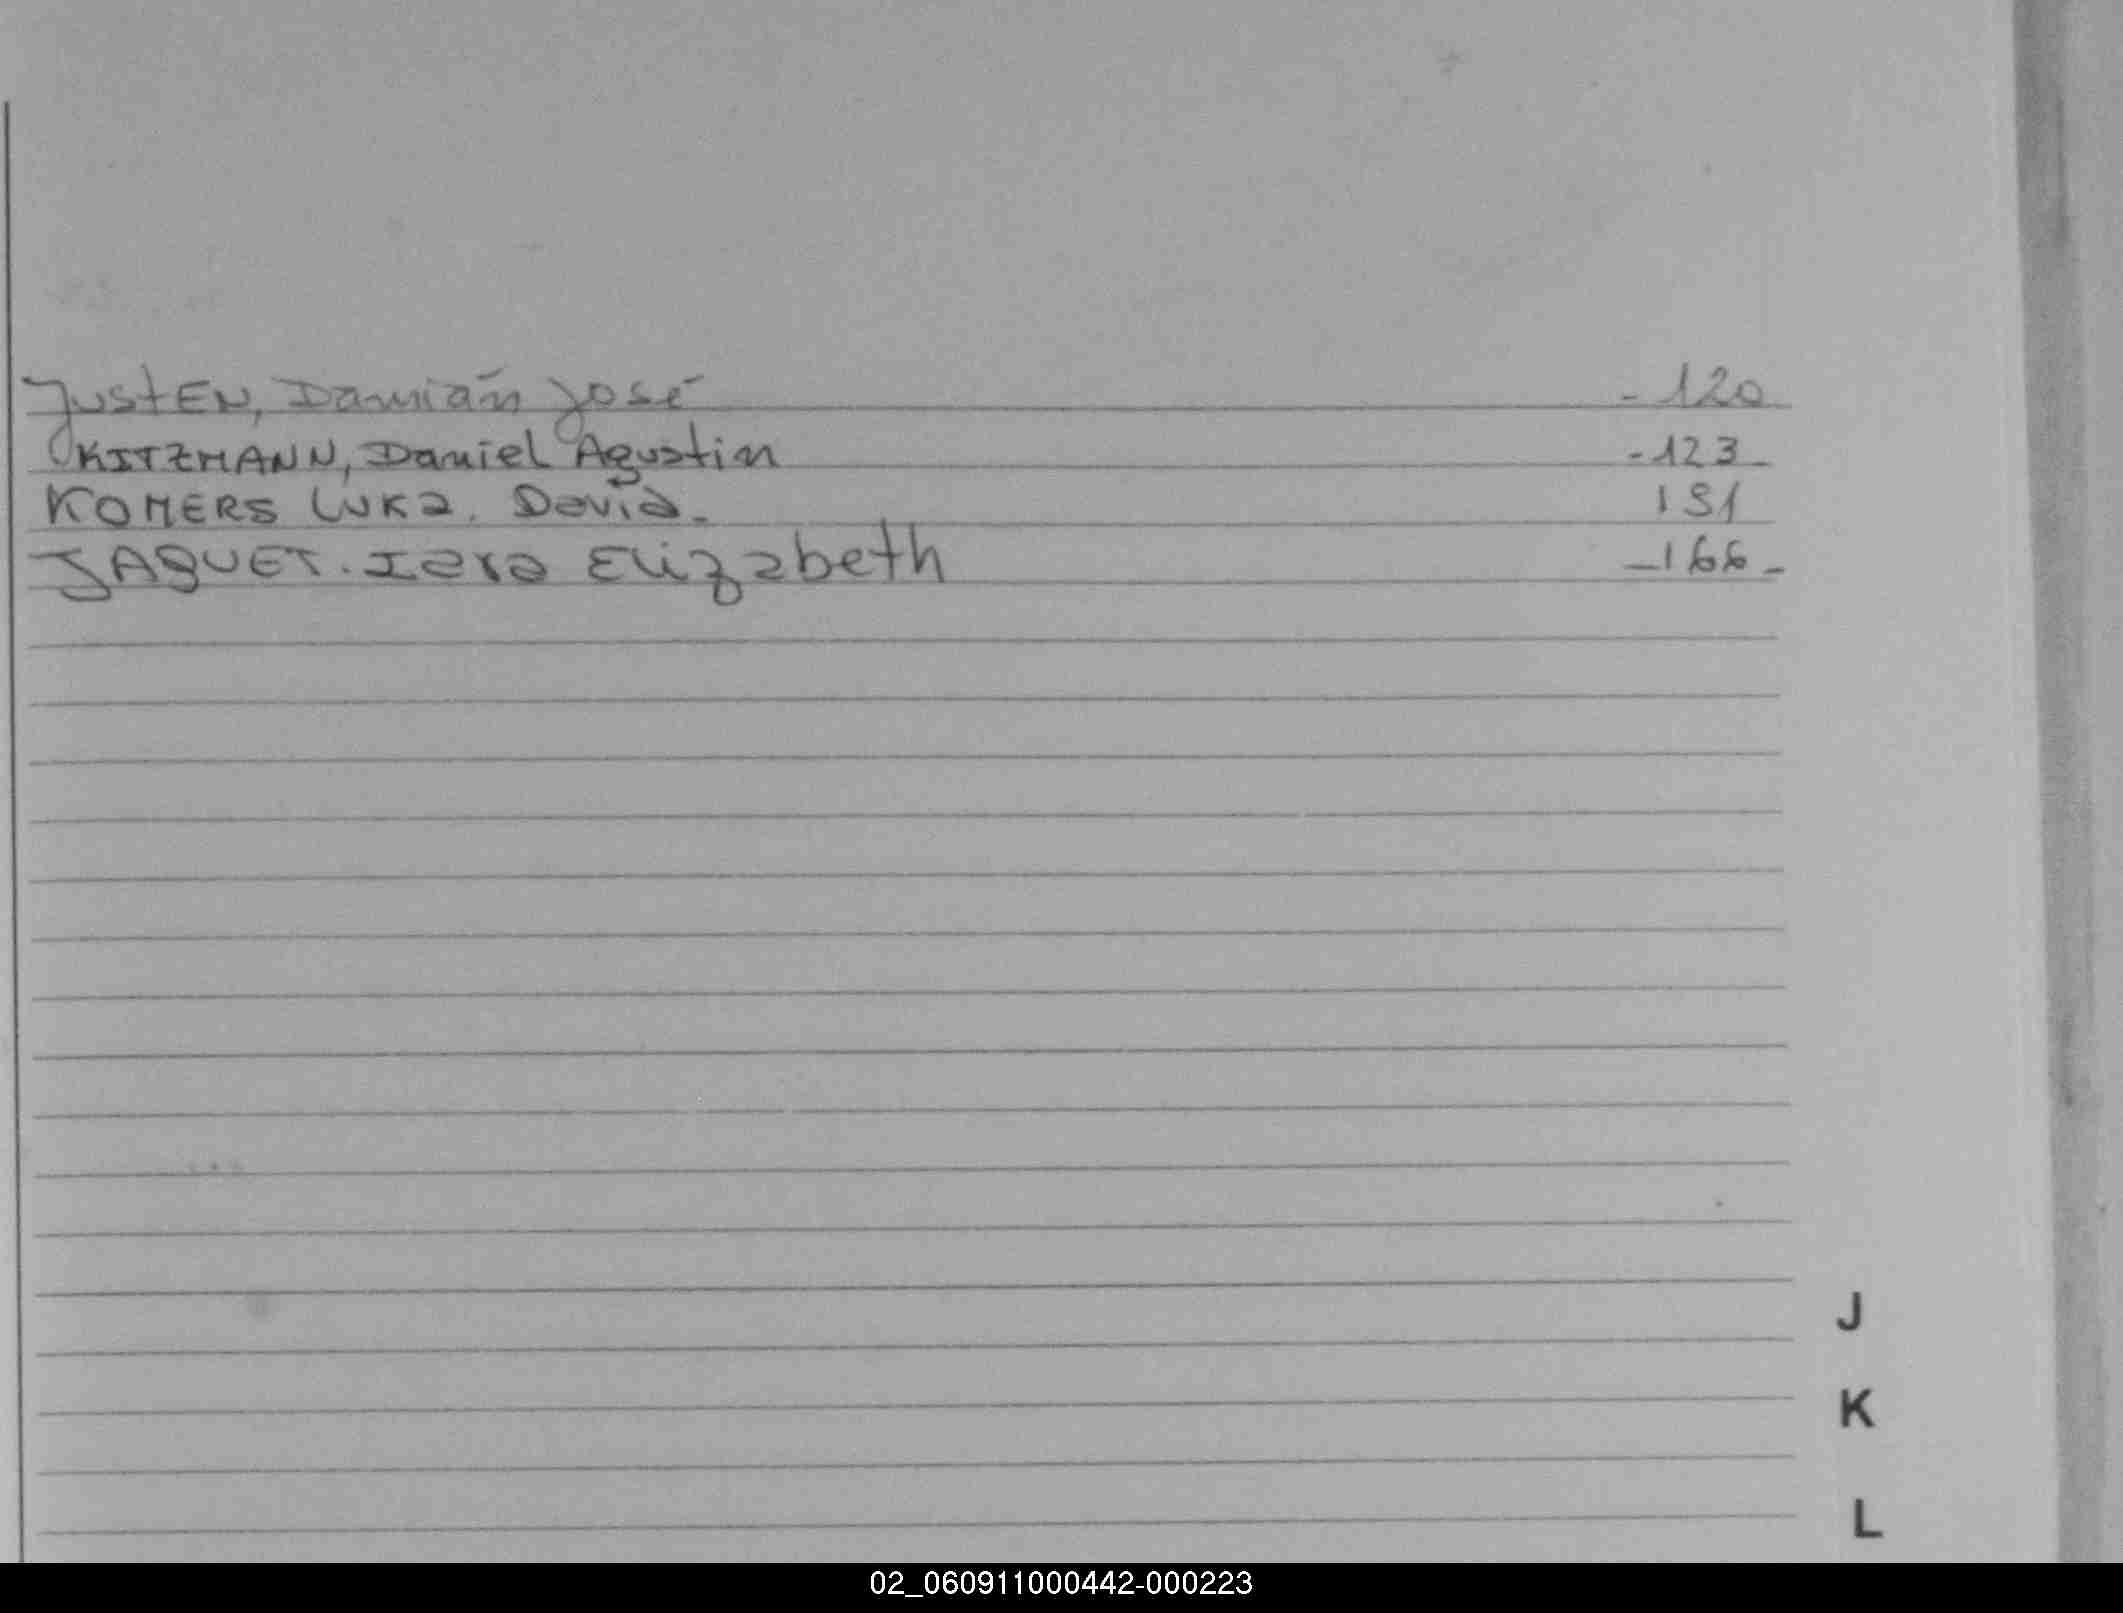 Justen, Damián José - 120
KITZMANN, Daniel Agustin - 123 -
KOMERS Luka. David - 151
JAQUET. Iara Elizabeth - 166 -
J
K
L
02_060911000442-000223